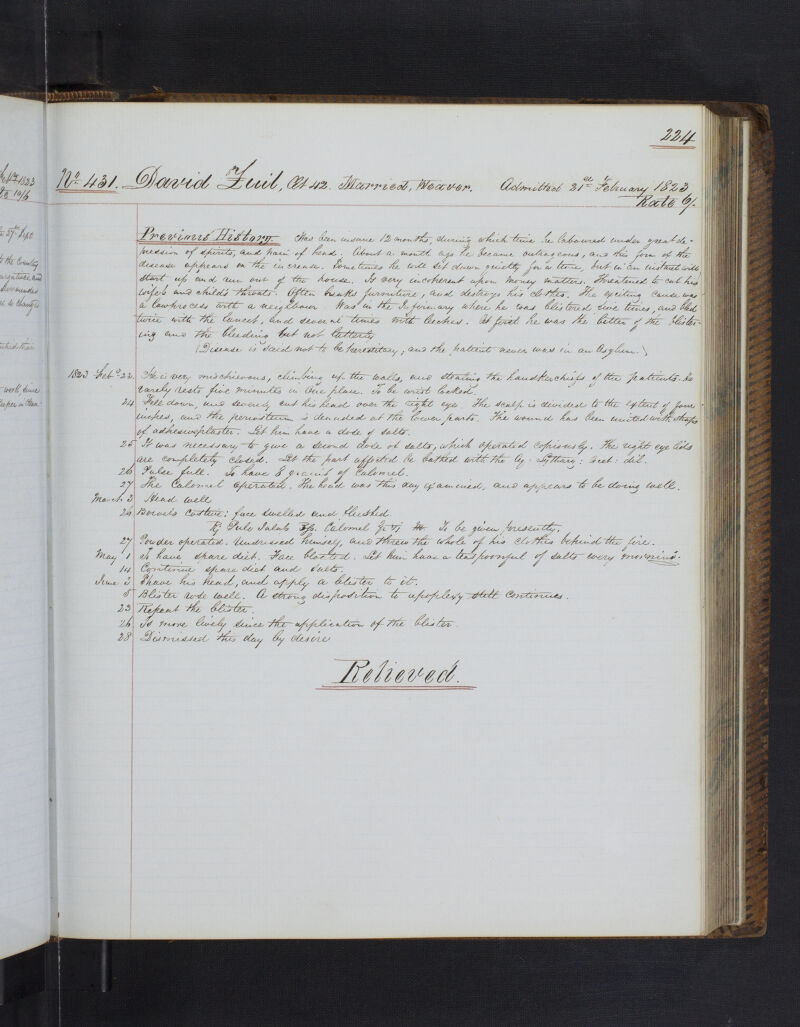 224
No. 431. David Zuil, Æt 42. Married, Weaver. Admitted 21st February 1823
Rate 6/.
Previous History. Has been insane 12 months, during which time he laboured under great de-
pression of spirits, and pain of head. About a month ago he became outrageous, and this form of the
disease appears on the increase. Sometimes he will sit down quietly for a time, but in an instant will
start up and run out of the house. Is very incoherent upon money matters. Threatened to cut his
wife's and child's throats. Often breaks furniture, and destroys his clothes. The exciting cause was
a lawprocess with a neighbour. Has in the Infirmary where he was blistered five times, and bled
twice with the lancet, and several times with leeches. At first he was the better of the blister-
ing and the bleeding but not latterly
(Disease is said not to be hereditary; and the patient never was in an Asylum.)
1823 Feby 22. He is very mischievous, climbing up the walls, and stealing the handkerchiefs of the patients. He
rarely rests five minutes in one place. To be wrist locked.
24 Fell down, and severely cut his head over the right eye. The scalp is divided to the extent of four
inches, and the pericranium is denuded at the lower parts. The wound has been united with straps
of adhesive plaster. Let him have a dose of salts.
25 It was necessary to give a second dose of salts, which operated copiously. The right eye lids
are completely closed. Let the part affected be bathed with the Aq: Lytharg: acet: dil.
26 Pulse full. To have 8 grains of Calomel.
27 The Calomel operated. The head was this day examined, and appears to be doing well.
March 3 Head well
26 Bowels costive; face swelled and flushed
℞ Pulv Jalap Calomel To be given presently.
27 Powder operated. Undressed himself, and threw the whole of his clothes behind the fire.
May 1 To have spare diet. Face bloated. Let him have a teaspoonful of salts every morning.
14 Continue spare diet and salts.
June 2 Shave his head, and apply a blister to it.
5 Blister rose well. A strong disposition to apoplexy still continues.
23 Repeat the blister.
26 Is more lively since the application of the blister.
28 Dismissed this day by desire
Relieved.